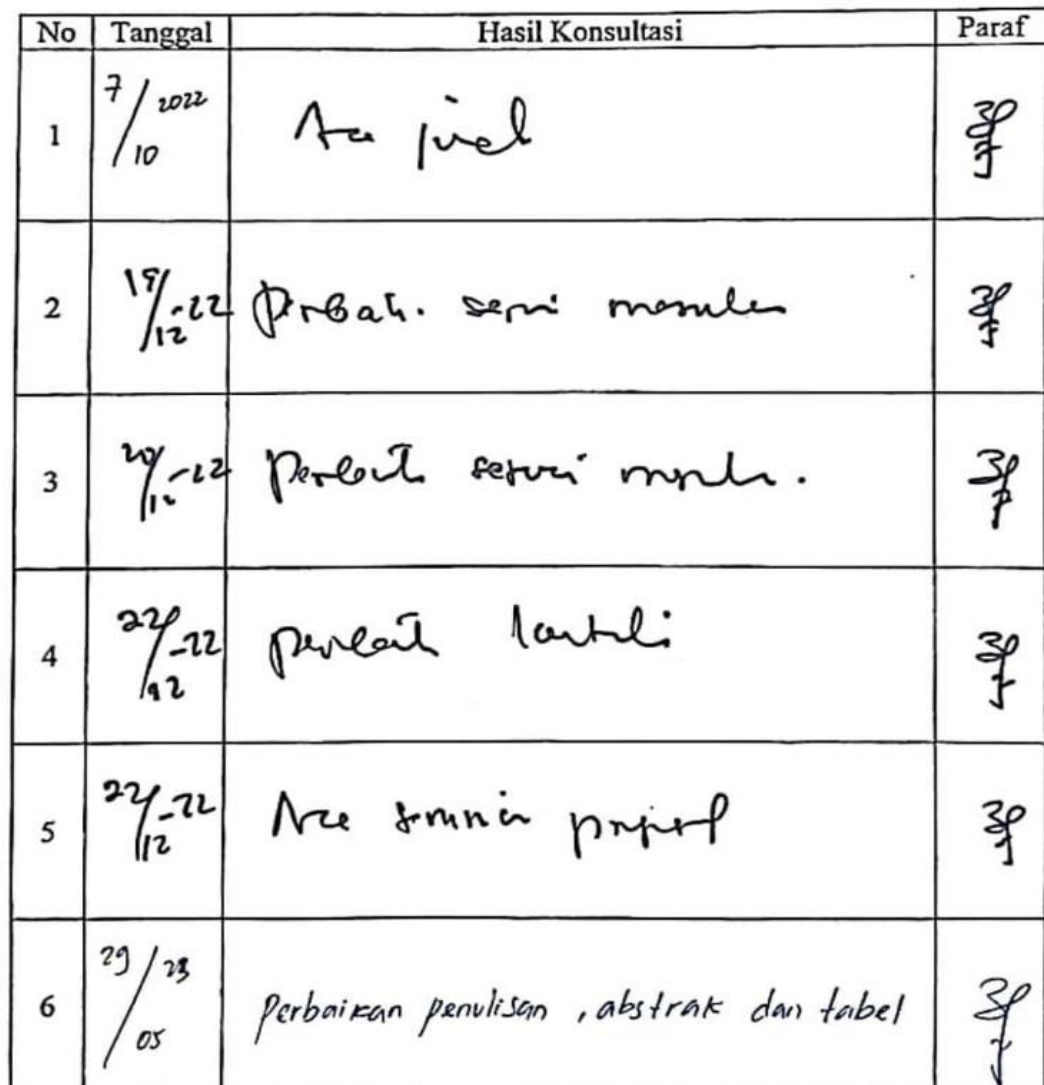 No Tanggal Hasil Konsultasi Paraf
1 7/10 2022 Acc judul
2 19/12-22 Perbaik. sesuai masukan
3 20/12-22 Perbaik sesuai
4 22/12-22 perbaik
5 22/12-22 Acc seminar proposal
6 29/05 23 Perbaikan penulisan, abstrak dan tabel